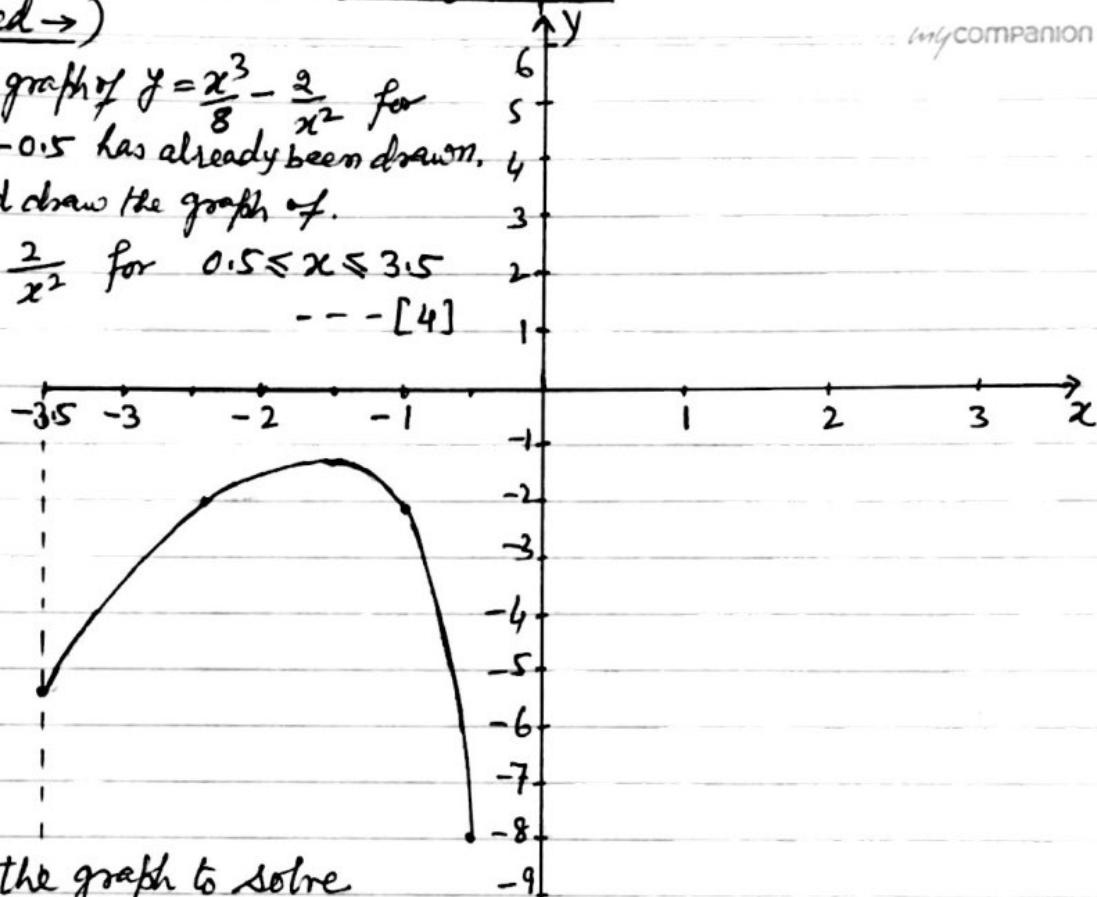 ed →)
my companion
graph of y = x³/8 − 2/x² for
−0.5 has already been drawn.
d draw the graph of.
2/x² for 0.5 ≤ x ≤ 3.5
- - - [4]
y
6
5
4
3
2
1
−3.5 −3 −2 −1 1 2 3 x
−1
−2
−3
−4
−5
−6
−7
−8
−9
the graph to solve